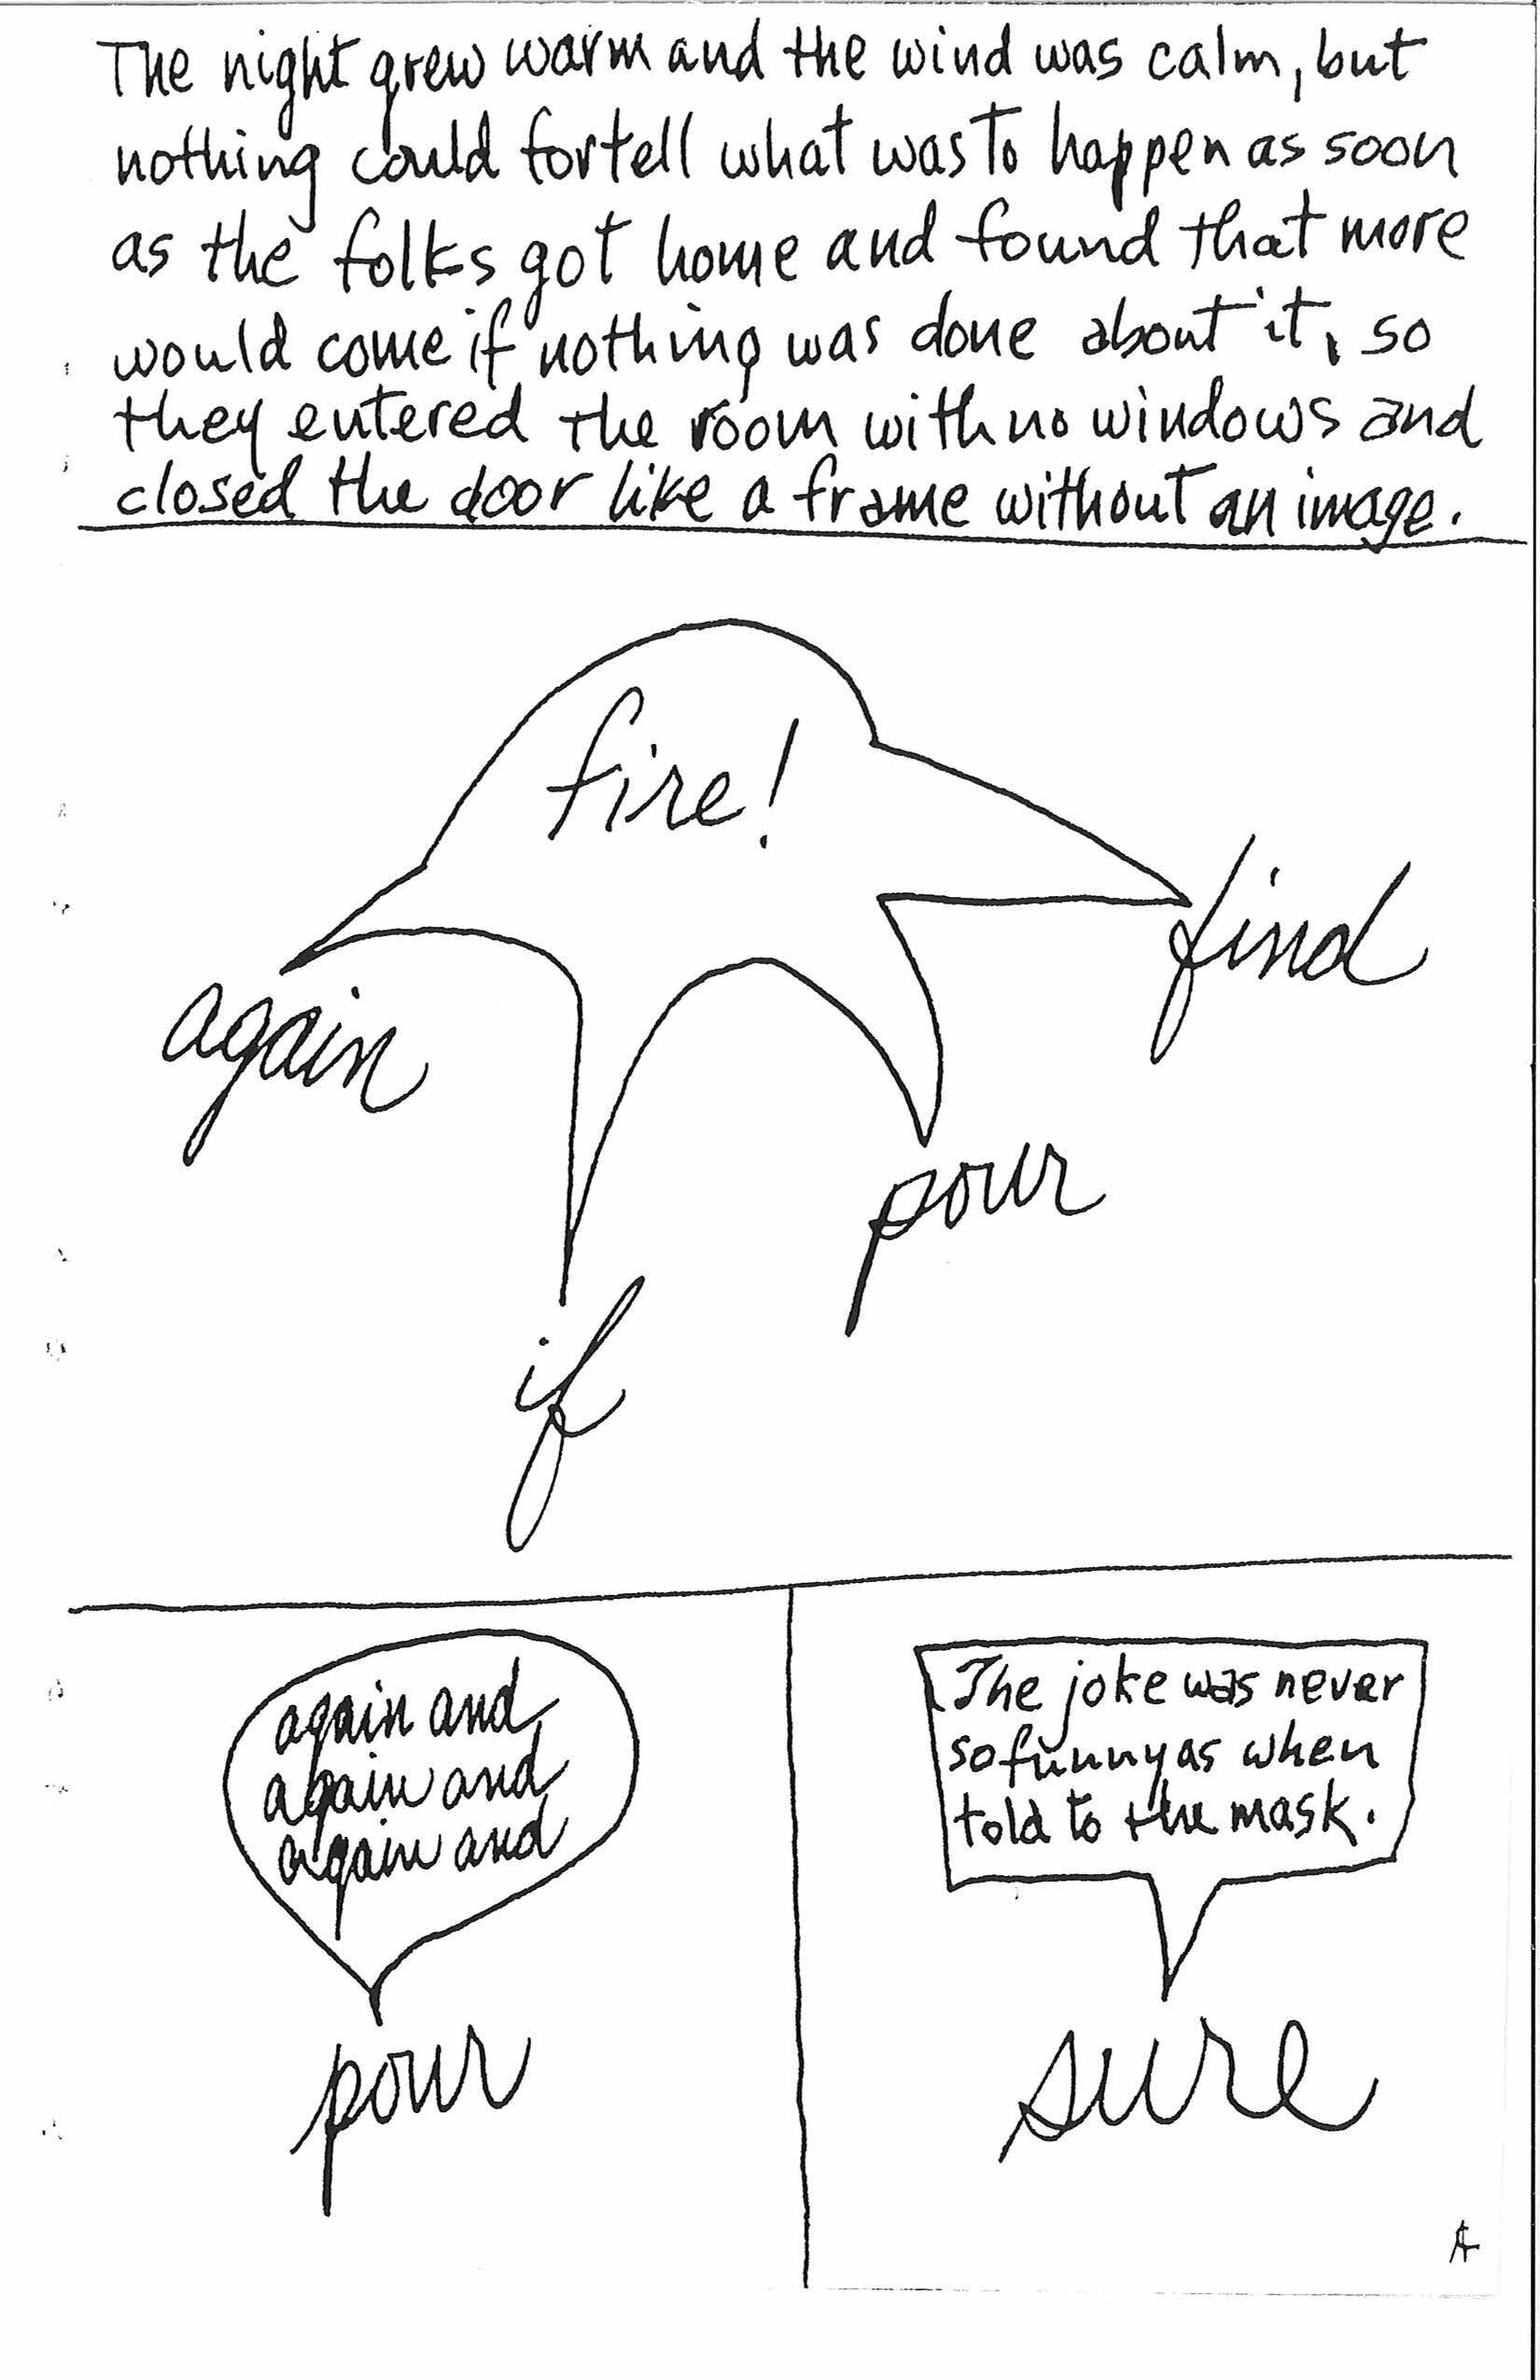 The night grew warm and the wind was calm, but
nothing could fortell what was to happen as soon
as the folks got home and found that more
would come if nothing was done about it, so
they entered the room with no windows and
closed the door like a frame without an image.
fire!
again
find
pour
if
again and
again and
again and
pour
The joke was never
so funny as when
told to the mask.
sure
A